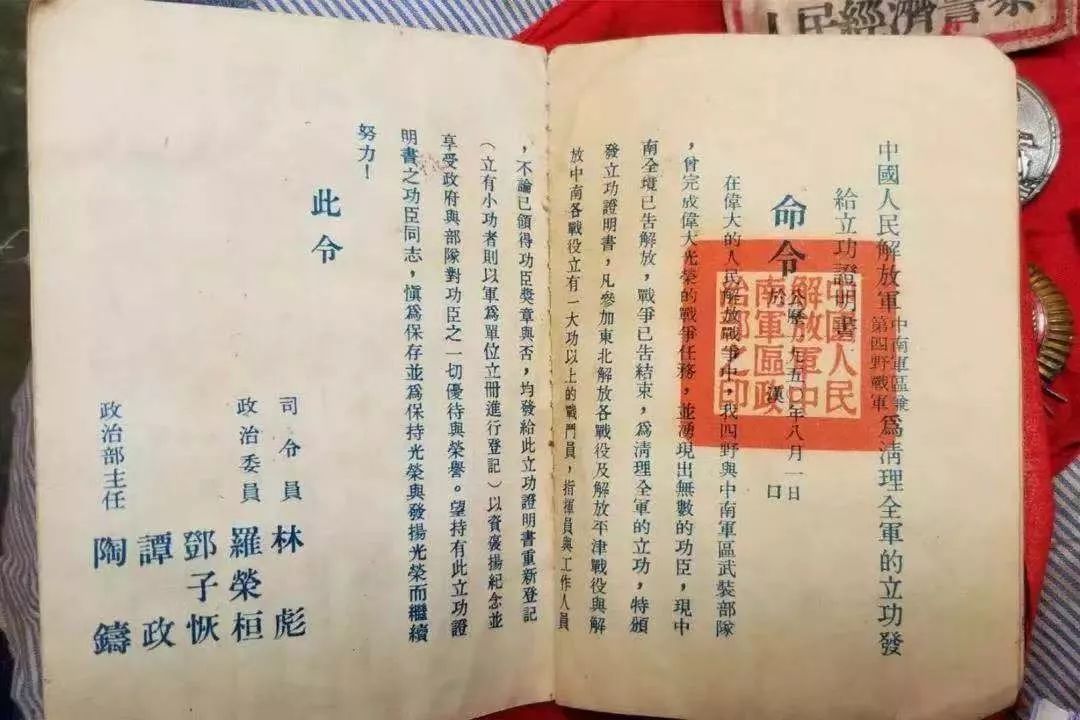 人民經濟警察
中國人民解放軍中南軍區兼第四野戰軍為清理全軍的立功發
給立功證明書
命令
公曆一九五〇年八月一日
於漢口
中國人民
解放軍中
南軍區政
治部之印
在偉大的人民解放戰爭中，我四野與中南軍區武裝部隊
，曾完成偉大光榮的戰爭任務，並湧現出無數的功臣，現中
南全境已告解放，戰爭已告結束，為清理全軍的立功，特頒
發立功證明書，凡參加東北解放各戰役及解放平津戰役與解
放中南各戰役立有一大功以上的戰鬥員，指揮員與工作人員
，不論已領得功臣獎章與否，均發給此立功證明書重新登記
（立有小功者則以軍為單位立冊進行登記）以資褒揚紀念並
享受政府與部隊對功臣之一切優待與榮譽。望持有此立功證
明書之功臣同志，慎為保存並為保持光榮與發揚光榮而繼續
努力！
此令
司令員 林彪
政治委員 羅榮桓
鄧子恢
政治部主任 譚政
陶鑄